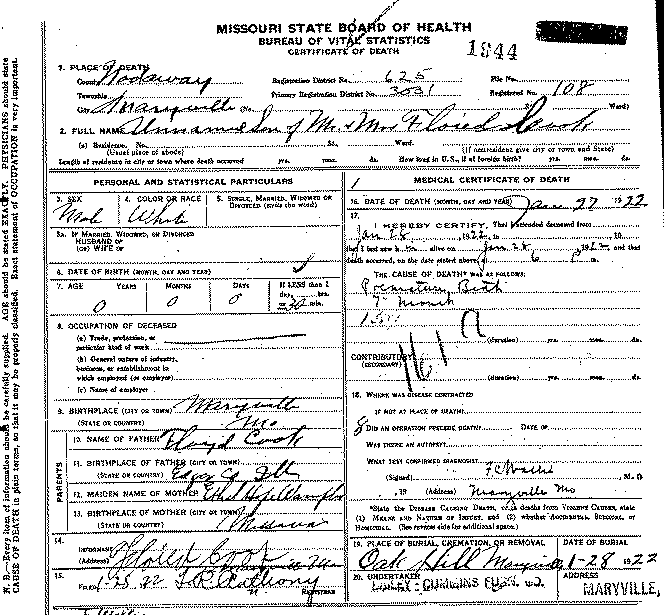 MISSOURI STATE BOARD OF HEALTH
BUREAU OF VITAL STATISTICS
CERTIFICATE OF DEATH
1844
1. PLACE OF DEATH
County Nodaway Registration District No. 625 File No.
Township Primary Registration District No. 3031 Registered No. 108
City Maryville (No. Ward)
2. FULL NAME Unnamed Son of Mr & Mrs Floyd Cook
(a) Residence. No. St. Ward.
(Usual place of abode) (If nonresident give city or town and State)
Length of residence in city or town where death occurred yrs. mos. ds. How long in U.S., if of foreign birth? yrs. mos. ds.
PERSONAL AND STATISTICAL PARTICULARS
3. SEX 4. COLOR OR RACE 5. SINGLE, MARRIED, WIDOWED OR DIVORCED (write the word)
Mal White
5A. IF MARRIED, WIDOWED, OR DIVORCED
HUSBAND OF
(OR) WIFE OF
6. DATE OF BIRTH (MONTH, DAY AND YEAR)
7. AGE YEARS MONTHS DAYS If LESS than 1 day, hrs.
0 0 0 or 30 min.
8. OCCUPATION OF DECEASED
(a) Trade, profession, or
particular kind of work
(b) General nature of industry,
business, or establishment in
which employed (or employer)
(c) Name of employer
9. BIRTHPLACE (CITY OR TOWN) Maryville
(STATE OR COUNTRY) Mo
PARENTS
10. NAME OF FATHER Floyd Cook
11. BIRTHPLACE OF FATHER (CITY OR TOWN)
(STATE OR COUNTRY) Edgar Co Ill
12. MAIDEN NAME OF MOTHER Ethel
13. BIRTHPLACE OF MOTHER (CITY OR TOWN)
(STATE OR COUNTRY) Missouri
14.
INFORMANT Floyd Cook
(Address)
15.
FILED 1-28 22 F.R. Anthony
REGISTRAR
MEDICAL CERTIFICATE OF DEATH
16. DATE OF DEATH (MONTH, DAY AND YEAR) Jan 27 1922
17.
I HEREBY CERTIFY, That I attended deceased from
Jan 28, 1922, to
that I last saw h alive on Jan 28, 1922, and that
death occurred, on the date stated above, at 6 P m.
THE CAUSE OF DEATH* WAS AS FOLLOWS:
Premature Birth
7 Month
161 a
(duration) yrs. mos. ds.
CONTRIBUTORY
(SECONDARY)
(duration) yrs. mos. ds.
18. WHERE WAS DISEASE CONTRACTED
IF NOT AT PLACE OF DEATH?
DID AN OPERATION PRECEDE DEATH? DATE OF
WAS THERE AN AUTOPSY?
WHAT TEST CONFIRMED DIAGNOSIS?
(Signed) F C Wallis M.D.
, 19 (Address) Maryville Mo
*State the DISEASE CAUSING DEATH, or in deaths from VIOLENT CAUSES, state
(1) MEANS AND NATURE OF INJURY, and (2) whether ACCIDENTAL, SUICIDAL, or
HOMICIDAL. (See reverse side for additional space.)
19. PLACE OF BURIAL, CREMATION, OR REMOVAL DATE OF BURIAL
Oak Hill Maryville 1-28 1922
20. UNDERTAKER ADDRESS
MARYVILLE,
N. B.—Every item of information should be carefully supplied. AGE should be stated EXACTLY. PHYSICIANS should state
CAUSE OF DEATH in plain terms, so that it may be properly classified. Exact statement of OCCUPATION is very important.